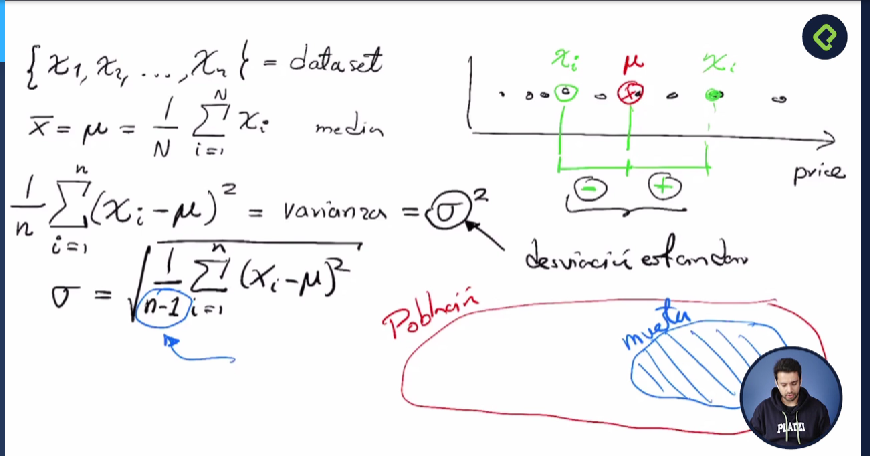 {x1, x2, ..., xn} = dataset
x̄ = μ = 1/N ∑_{i=1}^{N} xi media
1/n ∑_{i=1}^{n} (xi - μ)² = varianza = σ²
desviación estandar
σ = √(1/(n-1) ∑_{i=1}^{n} (xi - μ)²)
xi μ xi
price
- +
Población
muestra
PLATZI